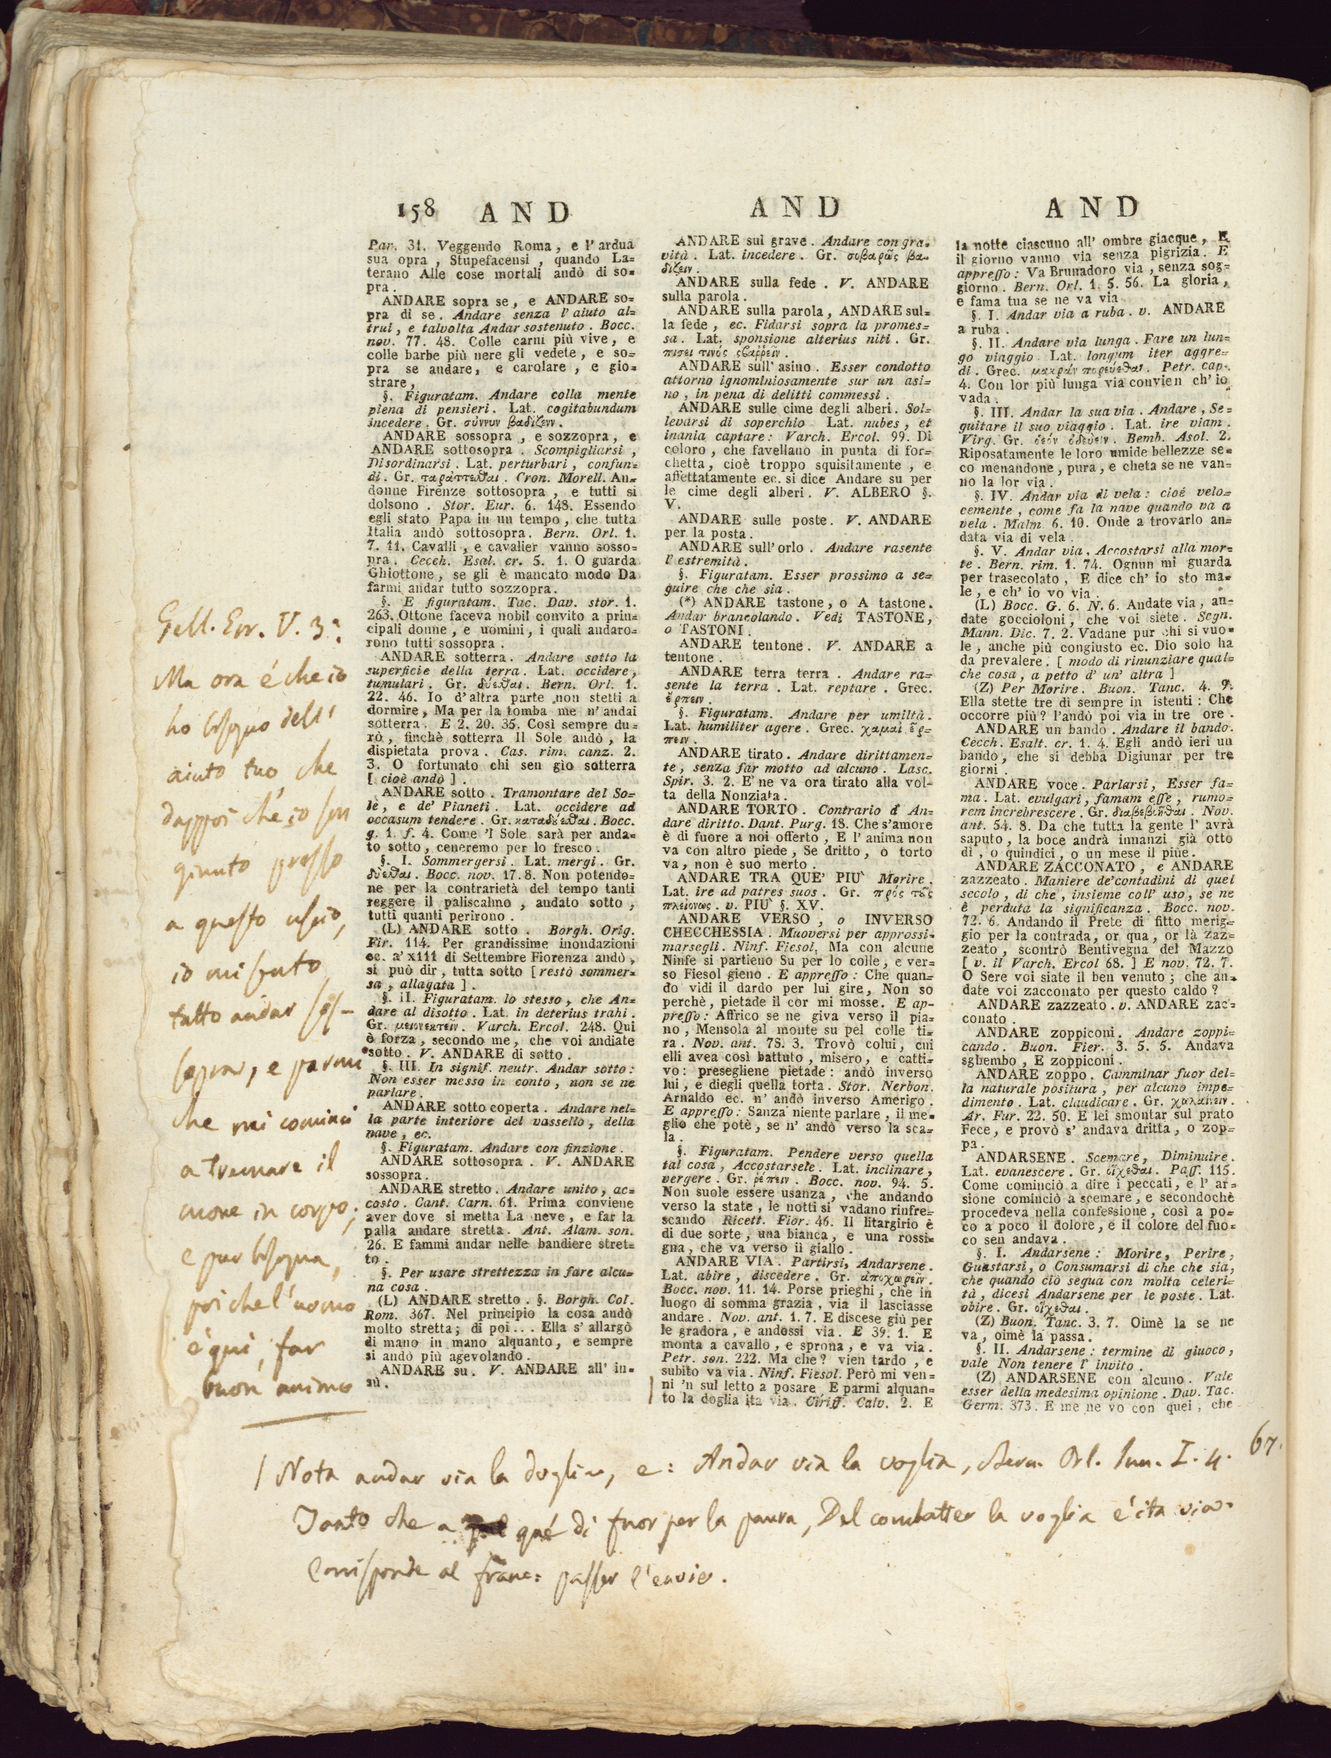 158 AND
AND
AND
Par. 31. Veggendo Roma, e l'ardua
sua opra, Stupefacensi, quando La=
terano Alle cose mortali andò di so=
pra.
ANDARE sopra se, e ANDARE so=
pra di se. Andare senza l'aiuto al=
trui, e talvolta Andar sostenuto. Bocc.
nov. 77. 48. Colle carni più vive, e
colle barbe più nere gli vedete, e so=
pra se andare, e carolare, e gio=
strare,
§. Figuratam. Andare colla mente
piena di pensieri. Lat. cogitabundum
incedere. Gr. σύννουν βαδίζειν.
ANDARE sossopra, e sozzopra, e
ANDARE sottosopra. Scompigliarsi,
Disordinarsi. Lat. perturbari, confun=
di. Gr. ταράττεσθαι. Cron. Morell. An=
donne Firenze sottosopra, e tutti si
dolsono. Stor. Eur. 6. 148. Essendo
egli stato Papa in un tempo, che tutta
Italia andò sottosopra. Bern. Orl. 1.
7. 11. Cavalli, e cavalier vanno sosso=
pra. Cecch. Esal. cr. 5. 1. O guarda
Ghiottone, se gli è mancato modo Da
farmi andar tutto sozzopra.
§. E figuratam. Tac. Dav. stor. 1.
263. Ottone faceva nobil convito a prin=
cipali donne, e uomini, i quali andaro=
rono tutti sossopra.
ANDARE sotterra. Andare sotto la
superficie della terra. Lat. occidere,
tumulari. Gr. δύεσθαι. Bern. Orl. 1.
22. 46. Io d'altra parte non stetti a
dormire, Ma per la tomba me n'andai
sotterra. E 2. 20. 35. Così sempre du=
rò, finchè sotterra Il Sole andò, la
dispietata prova. Cas. rim. canz. 2.
3. O fortunato chi sen gìo sotterra
[ cioè andò ].
ANDARE sotto. Tramontare del So=
le, e de' Pianeti. Lat. occidere ad
occasum tendere. Gr. καταδύεσθαι. Bocc.
g. 1. f. 4. Come 'l Sole sarà per anda=
to sotto, ceneremo per lo fresco.
§. I. Sommergersi. Lat. mergi. Gr.
δύεσθαι. Bocc. nov. 17. 8. Non potendo=
ne per la contrarietà del tempo tanti
reggere il paliscalmo, andato sotto,
tutti quanti perirono.
(L) ANDARE sotto. Borgh. Orig.
Fir. 114. Per grandissime inondazioni
ec. a' XIII di Settembre Fiorenza andò,
si può dir, tutta sotto [ restò sommer=
sa, allagata ].
§. II. Figuratam. lo stesso, che An=
dare al disotto. Lat. in deterius trahi.
Gr. μειονεκτεῖν. Varch. Ercol. 248. Qui
è forza, secondo me, che voi andiate
sotto. V. ANDARE di sotto.
§. III. In signif. neutr. Andar sotto:
Non esser messo in conto, non se ne
parlare.
ANDARE sotto coperta. Andare nel=
la parte interiore del vassello, della
nave, ec.
§. Figuratam. Andare con finzione.
ANDARE sottosopra. V. ANDARE
sossopra.
ANDARE stretto. Andare unito, ac=
costo. Cant. Carn. 61. Prima conviene
aver dove si metta La neve, e far la
palla andare stretta. Ant. Alam. son.
26. E fammi andar nelle bandiere stret=
to.
§. Per usare strettezza in fare alcu=
na cosa.
(L) ANDARE stretto. §. Borgh. Col.
Rom. 367. Nel principio la cosa andò
molto stretta; di poi... Ella s'allargò
di mano in mano alquanto, e sempre
si andò più agevolando.
ANDARE su. V. ANDARE all' in=
sù.
ANDARE sul grave. Andare con gra=
vità. Lat. incedere. Gr. σοβαρῶς βα=
δίζειν.
ANDARE sulla fede. V. ANDARE
sulla parola.
ANDARE sulla parola, ANDARE sul=
la fede, ec. Fidarsi sopra la promes=
sa. Lat. sponsione alterius niti. Gr.
ANDARE sull'asino. Esser condotto
attorno ignominiosamente sur un asi=
no, in pena di delitti commessi.
ANDARE sulle cime degli alberi. Sol=
levarsi di soperchio Lat. nubes, et
inania captare: Varch. Ercol. 99. Di
coloro, che favellano in punta di for=
chetta, cioè troppo squisitamente, e
affettatamente ec. si dice Andare su per
le cime degli alberi. V. ALBERO §.
V.
ANDARE sulle poste. V. ANDARE
per la posta.
ANDARE sull'orlo. Andare rasente
l'estremità.
§. Figuratam. Esser prossimo a se=
guire che che sia.
(*) ANDARE tastone, o A tastone.
Andar brancolando. Vedi TASTONE,
o TASTONI.
ANDARE tentone. V. ANDARE a
tentone.
ANDARE terra terra. Andare ra=
sente la terra. Lat. reptare. Grec.
ἕρπειν.
§. Figuratam. Andare per umiltà.
Lat. humiliter agere. Grec. χαμαὶ ἕρ=
πειν.
ANDARE tirato. Andare dirittamen=
te, senza far motto ad alcuno. Lasc.
Spir. 3. 2. E' ne va ora tirato alla vol=
ta della Nonziata.
ANDARE TORTO. Contrario d' An=
dare diritto. Dant. Purg. 18. Che s'amore
è di fuore a noi offerto, E l'anima non
va con altro piede, Se dritto, o torto
va, non è suo merto.
ANDARE TRA QUE' PIU' Morire.
Lat. ire ad patres suos. Gr. πρός τοὺς
πλείονας. v. PIU' §. XV.
ANDARE VERSO, o INVERSO
CHECCHESSIA. Muoversi per approssi=
marsegli. Ninf. Fiesol. Ma con alcune
Ninfe si partieno Su per lo colle, e ver=
so Fiesol gieno. E appresso: Che quan=
do vidi il dardo per lui gire, Non so
perchè, pietade il cor mi mosse. E ap=
presso: Affrico se ne giva verso il pia=
no, Mensola al monte su pel colle ti=
ra. Nov. ant. 78. 3. Trovò colui, cui
elli avea così battuto, misero, e catti=
vo: presegliene pietade: andò inverso
lui, e diegli quella torta. Stor. Nerbon.
Arnaldo ec. n' andò inverso Amerigo.
E appresso: Sanza niente parlare, il me=
glio che potè, se n' andò verso la sca=
la.
§. Figuratam. Pendere verso quella
tal cosa, Accostarsele. Lat. inclinare,
vergere. Gr. ῥέπειν. Bocc. nov. 94. 5.
Non suole essere usanza, che andando
verso la state, le notti si vadano rinfre=
scando Ricett. Fior. 46. Il litargirio è
di due sorte, una bianca, e una rossi=
gna, che va verso il giallo.
ANDARE VIA. Partirsi, Andarsene.
Lat. abire, discedere. Gr. ἀποχωρεῖν.
Bocc. nov. 11. 14. Porse prieghi, che in
luogo di somma grazia, via il lasciasse
andare. Nov. ant. 1. 7. E discese giù per
le gradora, e andossi via. E 39. 1. E
monta a cavallo, e sprona, e va via.
Petr. son. 222. Ma che? vien tardo, e
subito va via. Ninf. Fiesol. Però mi ven=
ni 'n sul letto a posare E parmi alquan=
to la doglia ita via. Ciriff. Calv. 2. E
la notte ciascuno all' ombre giacque, E
il giorno vanno via senza pigrizia. E
appresso: Va Brunadoro via, senza sog=
giorno. Bern. Orl. 1. 5. 56. La gloria,
e fama tua se ne va via
§. I. Andar via a ruba. v. ANDARE
a ruba.
§. II. Andare via lunga. Fare un lun=
go viaggio Lat. longum iter aggre=
di. Grec. μακρὰν πορεύεσθαι. Petr. cap.
4. Con lor più lunga via convien ch' io
vada.
§. III. Andar la sua via. Andare, Se=
guitare il suo viaggio. Lat. ire viam.
Virg. Gr. ὁδόν ὁδεύειν. Bemb. Asol. 2.
Riposatamente le loro umide bellezze se=
co menandone, pura, e cheta se ne van=
no la lor via.
§. IV. Andar via di vela: cioè velo=
cemente, come fa la nave quando va a
vela. Malm. 6. 10. Onde a trovarlo an=
data via di vela.
§. V. Andar via. Accostarsi alla mor=
te. Bern. rim. 1. 74. Ognun mi guarda
per trasecolato, E dice ch' io sto ma=
le, e ch' io vo via.
(L) Bocc. G. 6. N. 6. Andate via, an=
date goccioloni, che voi siete. Segn.
Mann. Dic. 7. 2. Vadane pur chi si vuo=
le, anche più congiusto ec. Dio solo ha
da prevalere. [ modo di rinunziare qual=
che cosa, a petto d' un' altra ]
(Z) Per Morire. Buon. Tanc. 4. 9.
Ella stette tre dì sempre in istenti: Che
occorre più? l'andò poi via in tre ore.
ANDARE un bando. Andare il bando.
Cecch. Esalt. cr. 1. 4. Egli andò ieri un
bando, che si debba Digiunar per tre
giorni.
ANDARE voce. Parlarsi, Esser fa=
ma. Lat. evulgari, famam esse, rumo=
rem increbrescere. Gr. διαβεβοῆσθαι. Nov.
ant. 54. 8. Da che tutta la gente l' avrà
saputo, la boce andrà innanzi già otto
dì, o quindici, o un mese il piùe.
ANDARE ZACCONATO, e ANDARE
zazzeato. Maniere de'contadini di quel
secolo, di che, insieme coll' uso, se ne
è perduta la significanza. Bocc. nov.
72. 6. Andando il Prete di fitto merig=
gio per la contrada, or qua, or là zaz=
zeato, scontrò Bentivegna del Mazzo
[ v. il Varch. Ercol 68. ] E nov. 72. 7.
O Sere voi siate il ben venuto; che an=
date voi zacconato per questo caldo?
ANDARE zazzeato. v. ANDARE zac=
conato.
ANDARE zoppiconi. Andare zoppi=
cando. Buon. Fier. 3. 5. 5. Andava
sghembo, E zoppiconi.
ANDARE zoppo. Camminar fuor del=
la naturale positura, per alcuno impe=
dimento. Lat. claudicare. Gr. χωλαίνειν.
Ar. Fur. 22. 50. E lei smontar sul prato
Fece, e provò s' andava dritta, o zop=
pa.
ANDARSENE. Scemare, Diminuire.
Lat. evanescere. Gr. οἴχεσθαι. Pass. 115.
Come cominciò a dire i peccati, e l' ar=
sione cominciò a scemare, e secondochè
procedeva nella confessione, così a po=
co a poco il dolore, e il colore del fuo=
co sen andava.
§. I. Andarsene: Morire, Perire,
Guastarsi, o Consumarsi di che che sia,
che quando ciò segua con molta celeri=
tà, dicesi Andarsene per le poste. Lat.
obire. Gr. οἴχεσθαι.
(Z) Buon. Tanc. 3. 7. Oimè la se ne
va, oimè la passa.
§. II. Andarsene: termine di giuoco,
vale Non tenere l' invito.
(Z) ANDARSENE con alcuno. Vale
esser della medesima opinione. Dav. Tac.
Germ. 373. E me ne vo con quei, che
Gell. Err. V. 3:
Ma ora é che io
ho bisogno dell'
aiuto tuo che
dappoi ché io son
giunto presso
a questo uscio,
io mi sento
tutto andar sos-
sopra, e parmi
che mi cominci
a tremare il
cuore in corpo;
e pur bisogna,
poi che l'uomo
è qui, far
buon animo
/ Nota andar via la doglia, e: Andar via la voglia, Bern. Orl. Inn. I. 4. 67.
Tanto che a qué di fuor per la paura, Del combatter la voglia é ita via.
Corrisponde al franc: passer l'envie.